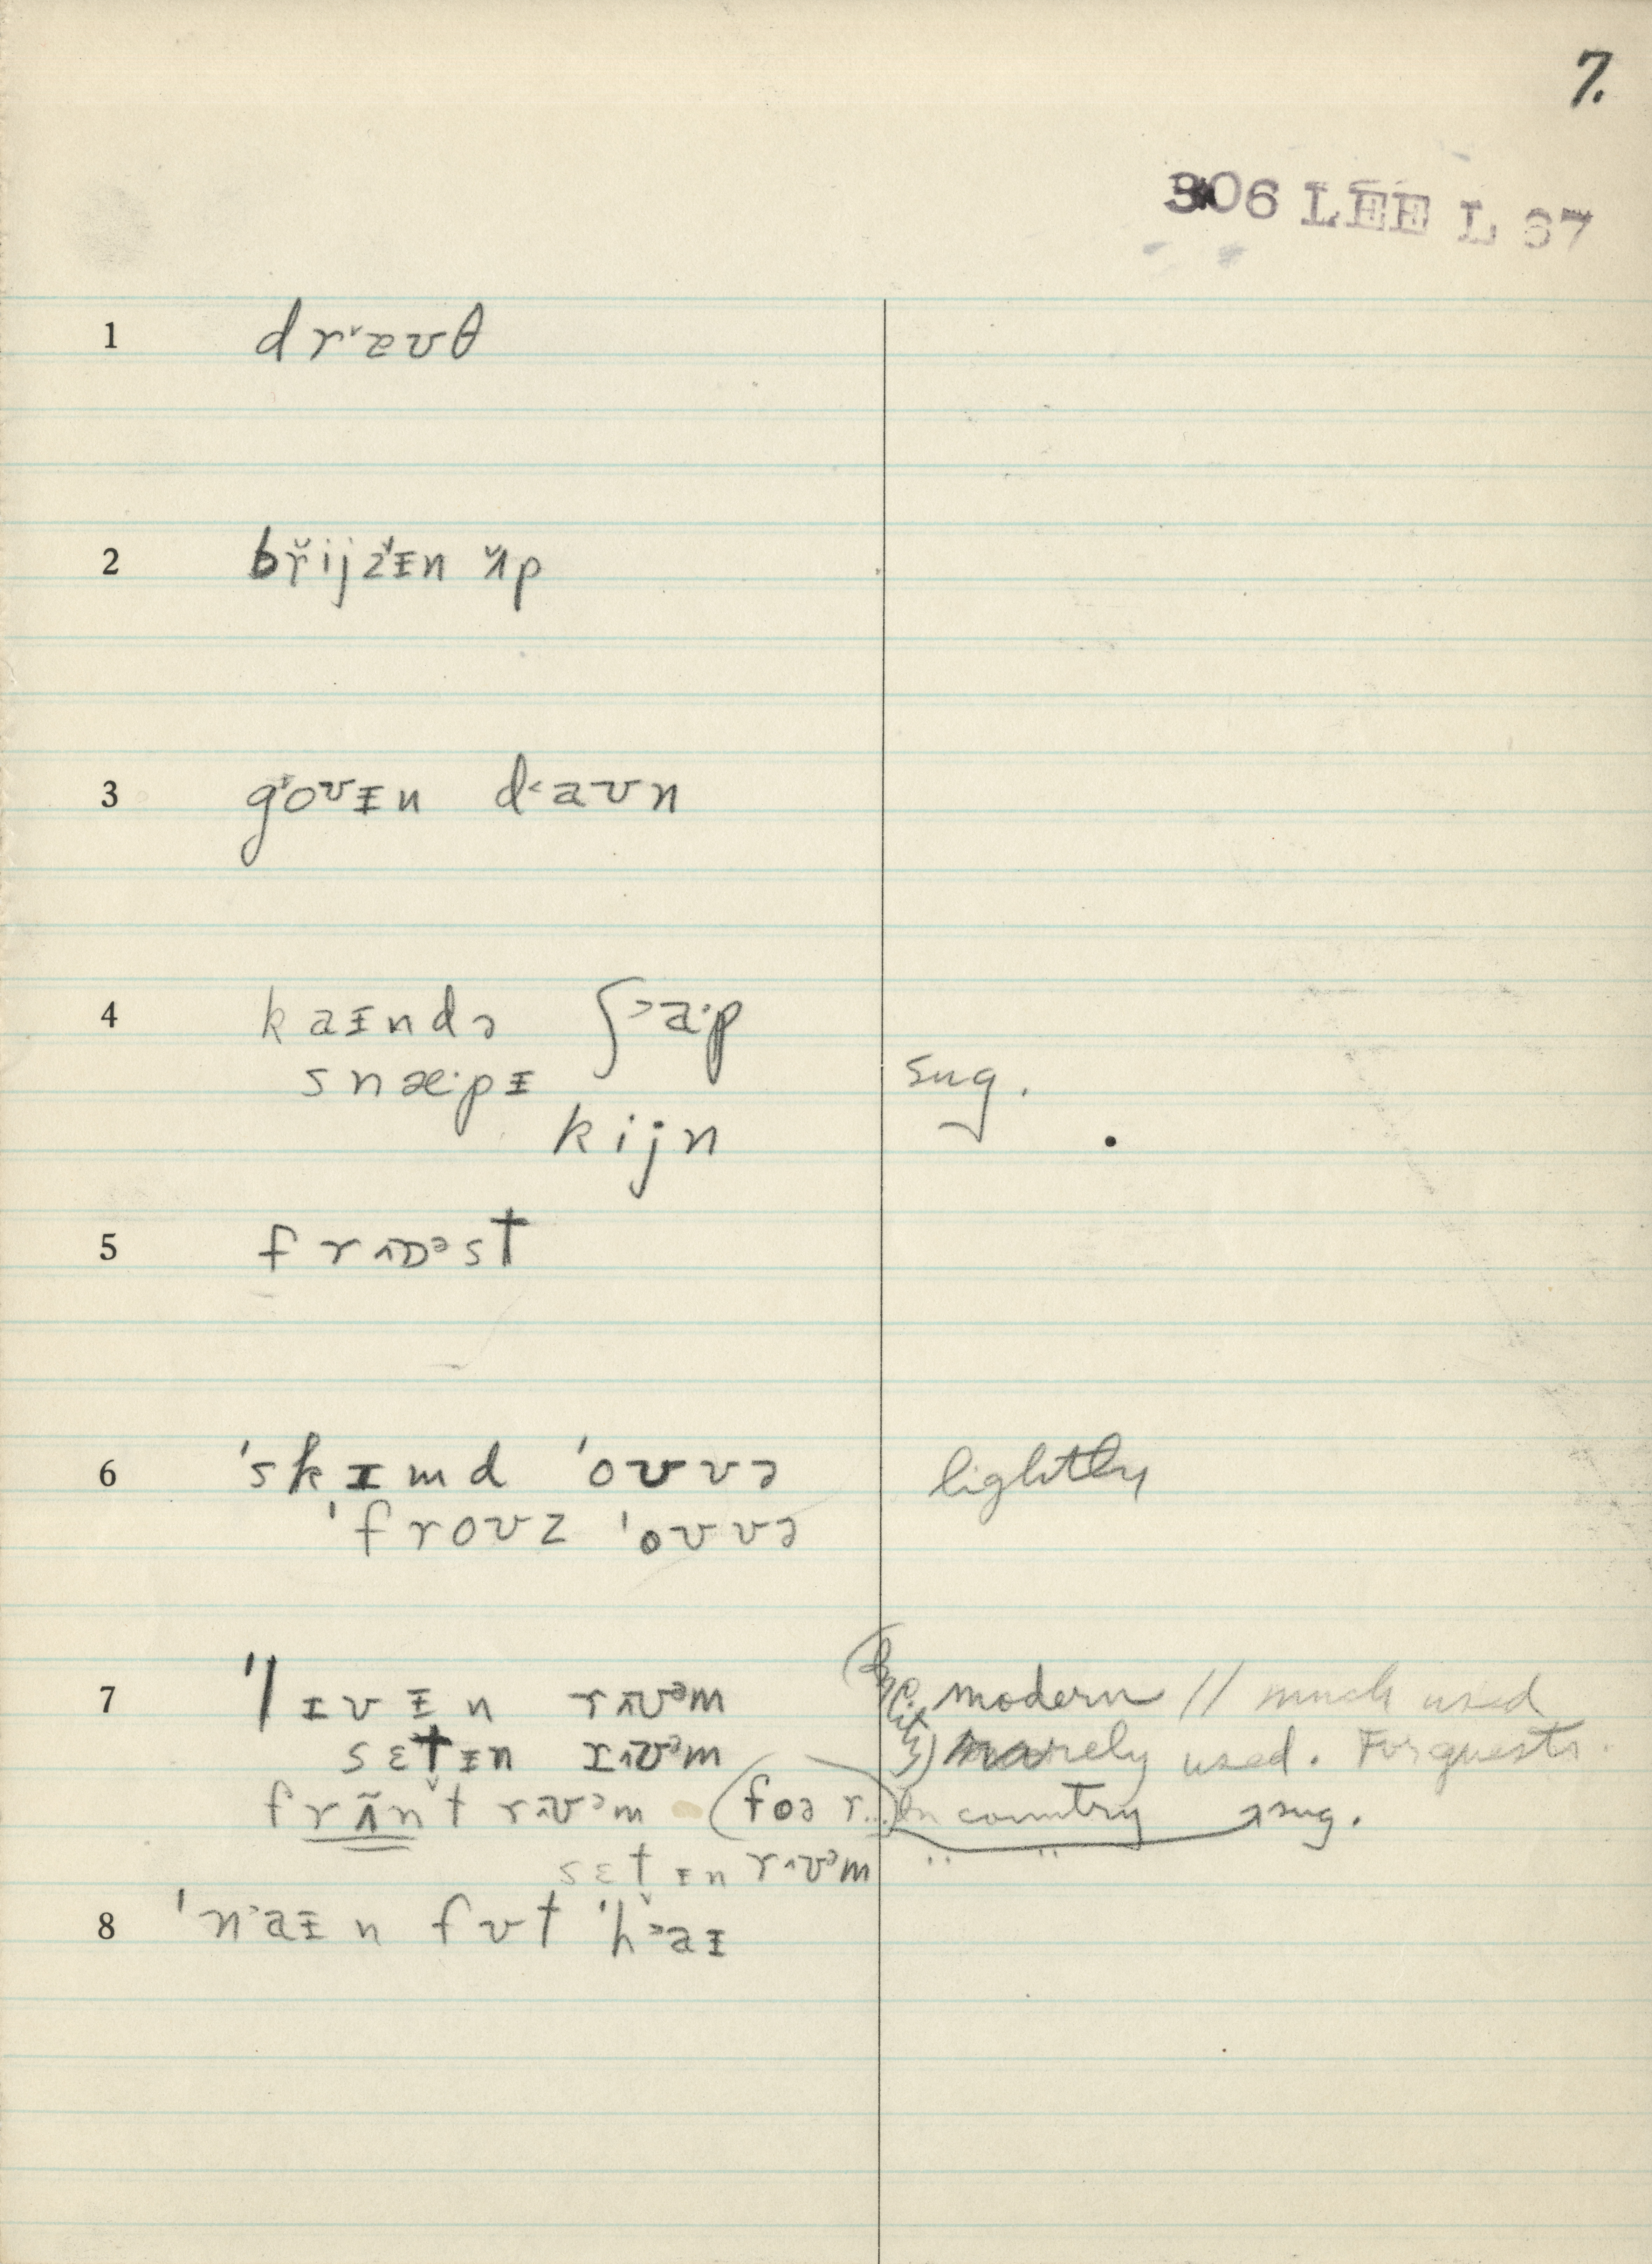 7.
306 LEE L 67
1 dr˅æʊθ
2 bř̌ijz̆ᵻn ʌ̌p
3 g˄oʊᵻn d˂aʊn
4 kaᵻndə ʃ˃a·p
snæ·pᵻ sug.
kijn
5 frʌɒᵊst
6 'skɪmd 'oʊvə lightly
'froʊz 'oʊvə
7 'lɪvᵻn rʌʊᵊm (in city) modern // much used
sɛtᵻn rʌʊᵊm rarely used. For guests.
frʌ̃n̆t rʌʊᵊm (foə r..) In country sug.
sɛtᵻn rʌʊᵊm " "
8 'n˃aᵻn fʊt 'h˃aɪ